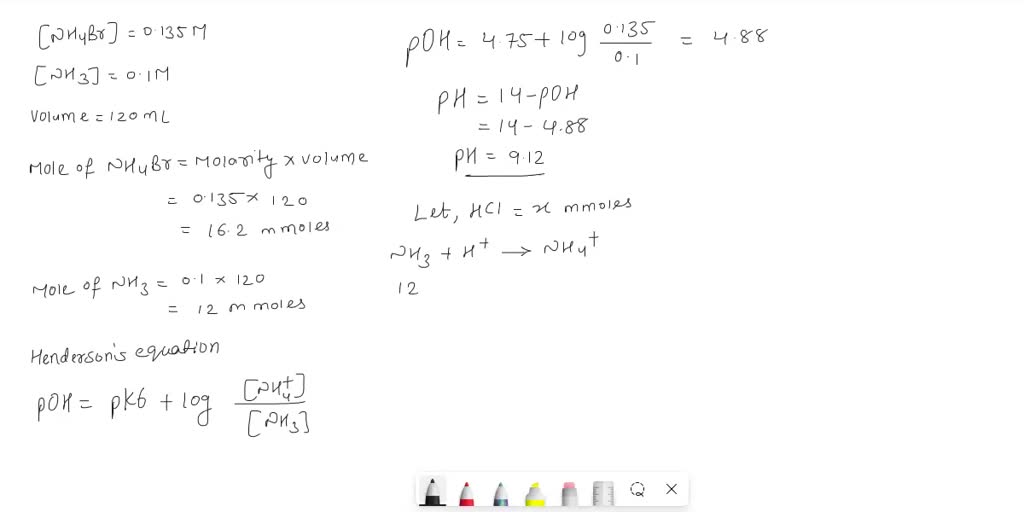 [NH4Br] = 0.135 M
[NH3] = 0.1 M
Volume = 120 mL
Mole of NH4Br = Molarity x volume
= 0.135 x 120
= 16.2 m moles
Mole of NH3 = 0.1 x 120
= 12 m moles
Henderson's equation
pOH = pKb + log [NH4+] / [NH3]
pOH = 4.75 + log 0.135 / 0.1 = 4.88
PH = 14 - pOH
= 14 - 4.88
PH = 9.12
Let, HCl = x mmoles
NH3 + H+ → NH4+
12